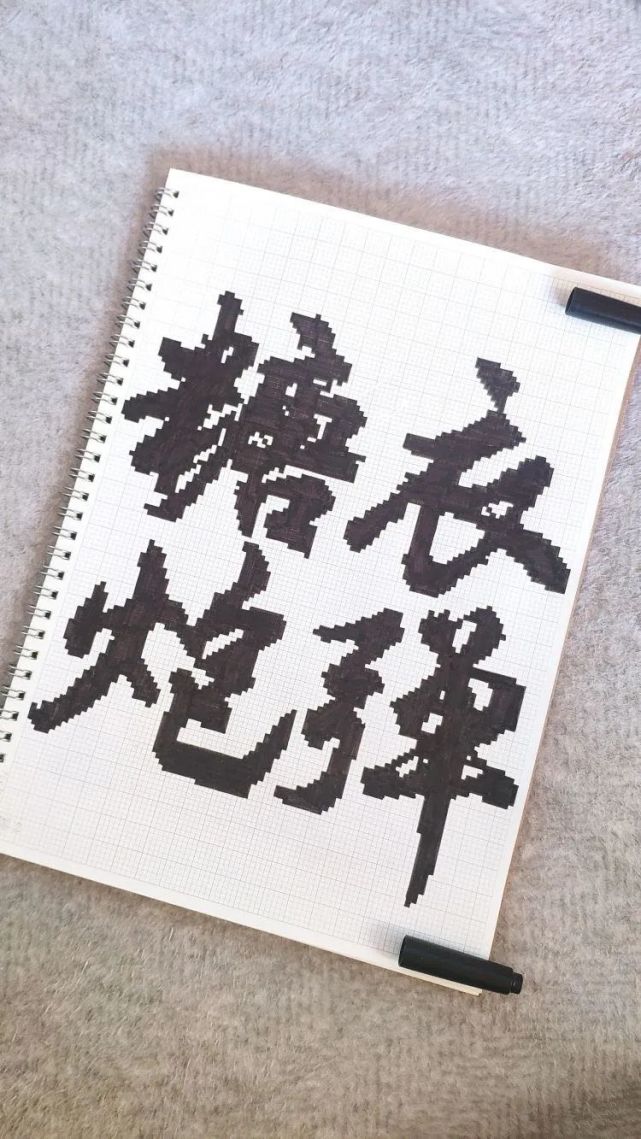 糖衣
炮弹